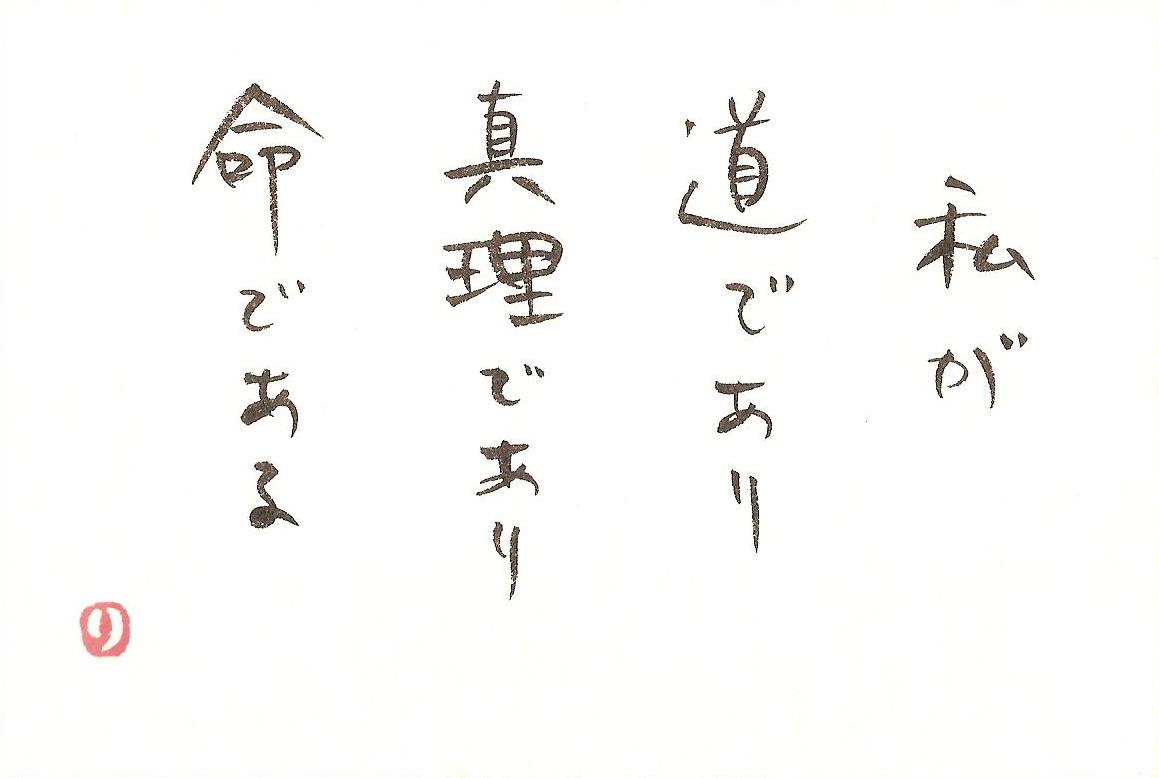 私が
道であり
真理であり
命である
の